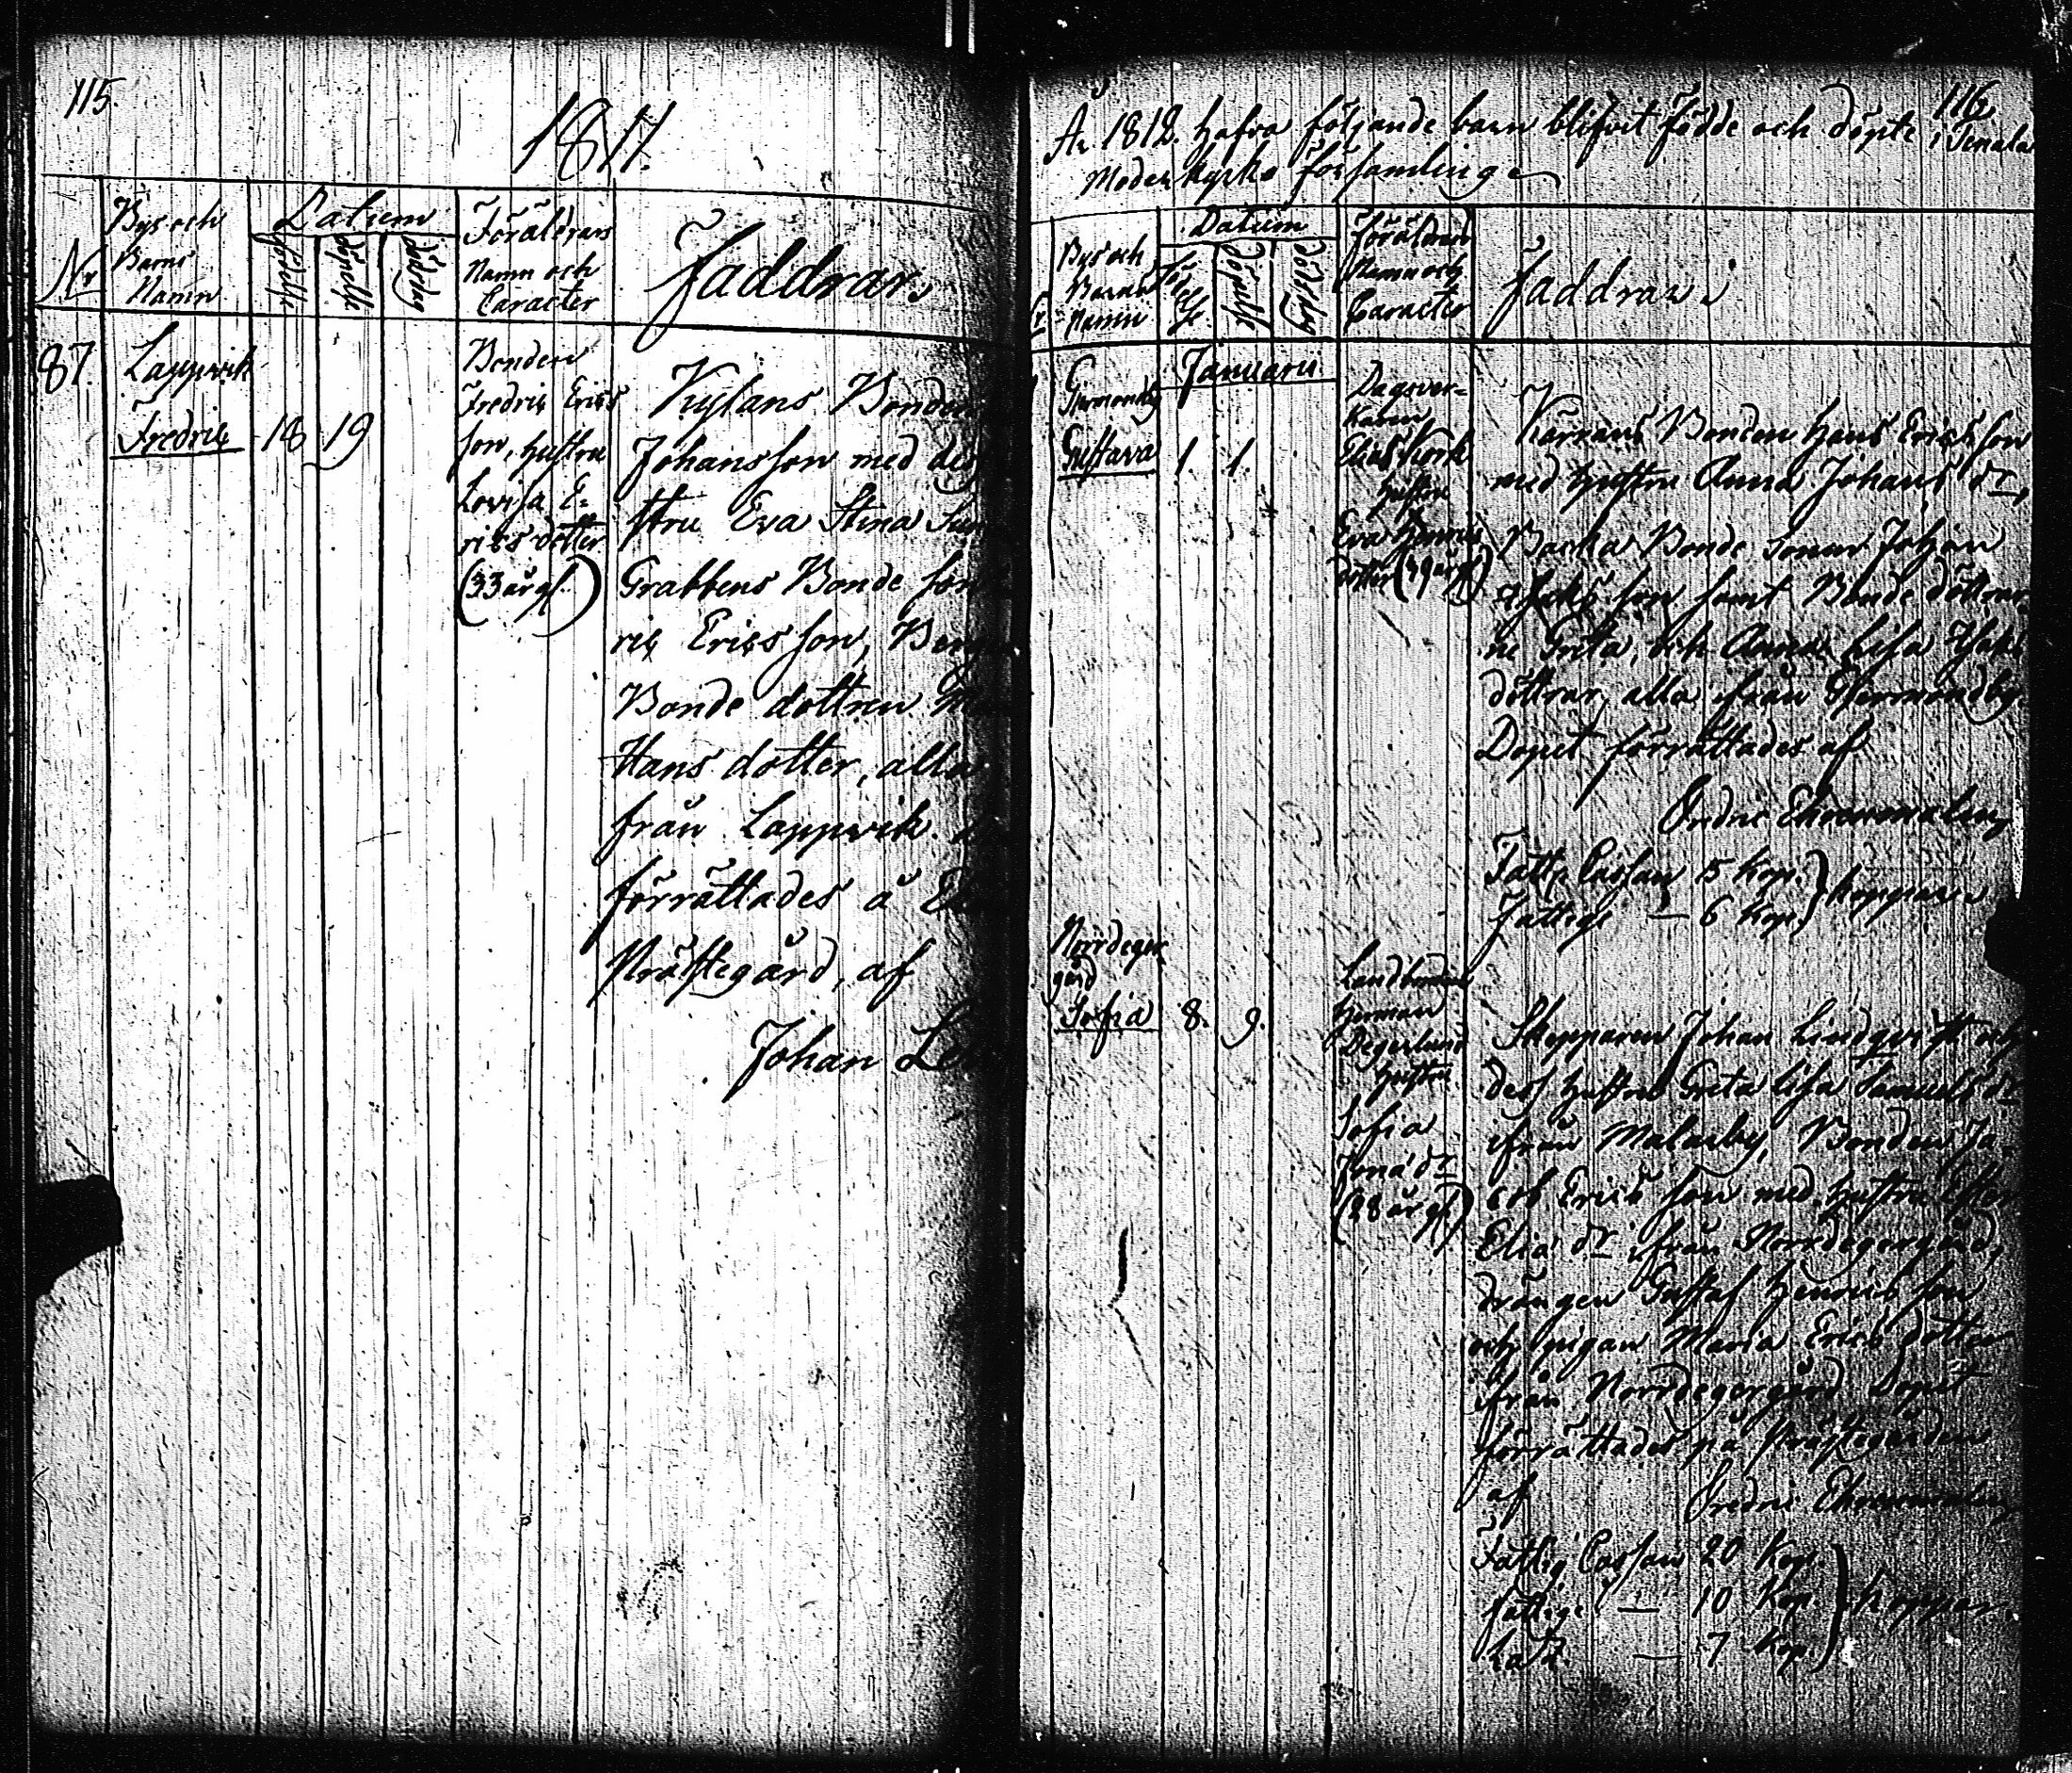 115.
1811.
Nr
Bys och
Barns
Namn
Datum
födelse
döpelse
dödsdag
Föräldrars
Namn och
Caracter
Faddrar
87.
Lappvik
Fredric
18 19
Bonden
Fredric Erics
son, hustru
Lovisa E-
rics dotter
(33 år gl.)
Kylans Bonden
Johansson med dess
stru Eva Stina
Grabbens Bonde son
ric Ericsson,
Bonde dottren
Hans dotter, alla
från Lappvik
förrättades å
Prästegård, af
Johan
116.
År 1812. hafva följande barn blifvit födde och döpte i Tenala
Moderkyrko församling
Bys och
Barns
Namn
Datum
födelse
döpelse
dödsdag
Föräldrars
Namn och
Caracter
Faddrar
Januarii
Gustava
1. 1.
Dagsver-
karen
Elias
hustru
Eva Henrics
dotter
Bonden Hans Ericsson
med hustru Anna Johans dr,
Backa Bonde Sonen Johan
son samt Bonde döttrar
ne Greta, och Anna Lisa
döttrar, alla från Germundby
Dopet förrättades af
Fattig Cassan 15 Kop.
Fattige — 6 Kop. } koppar
Norrdeger
gård
Sofia
8. 9.
Landbonden
Herman
Degerlund
hustru
Sofia
Jona dr
(28 år gl.)
Skepparen Johan Lindqvist och
dess hustru Greta Lisa Samuels dr
ifrån Malarby, Bonden Ja-
cob Ericsson med hustru Ester
Elia dr ifrån Norrdegergård,
drängen Gustaf Henricsson
och pigan Maria Erics dotter
ifrån Norrdegergård Dopet
förrättades på Prästegården
af
Fattig Cassan 20 Kop.
fattige — 10 Kop. } koppar
— 7 Kop.